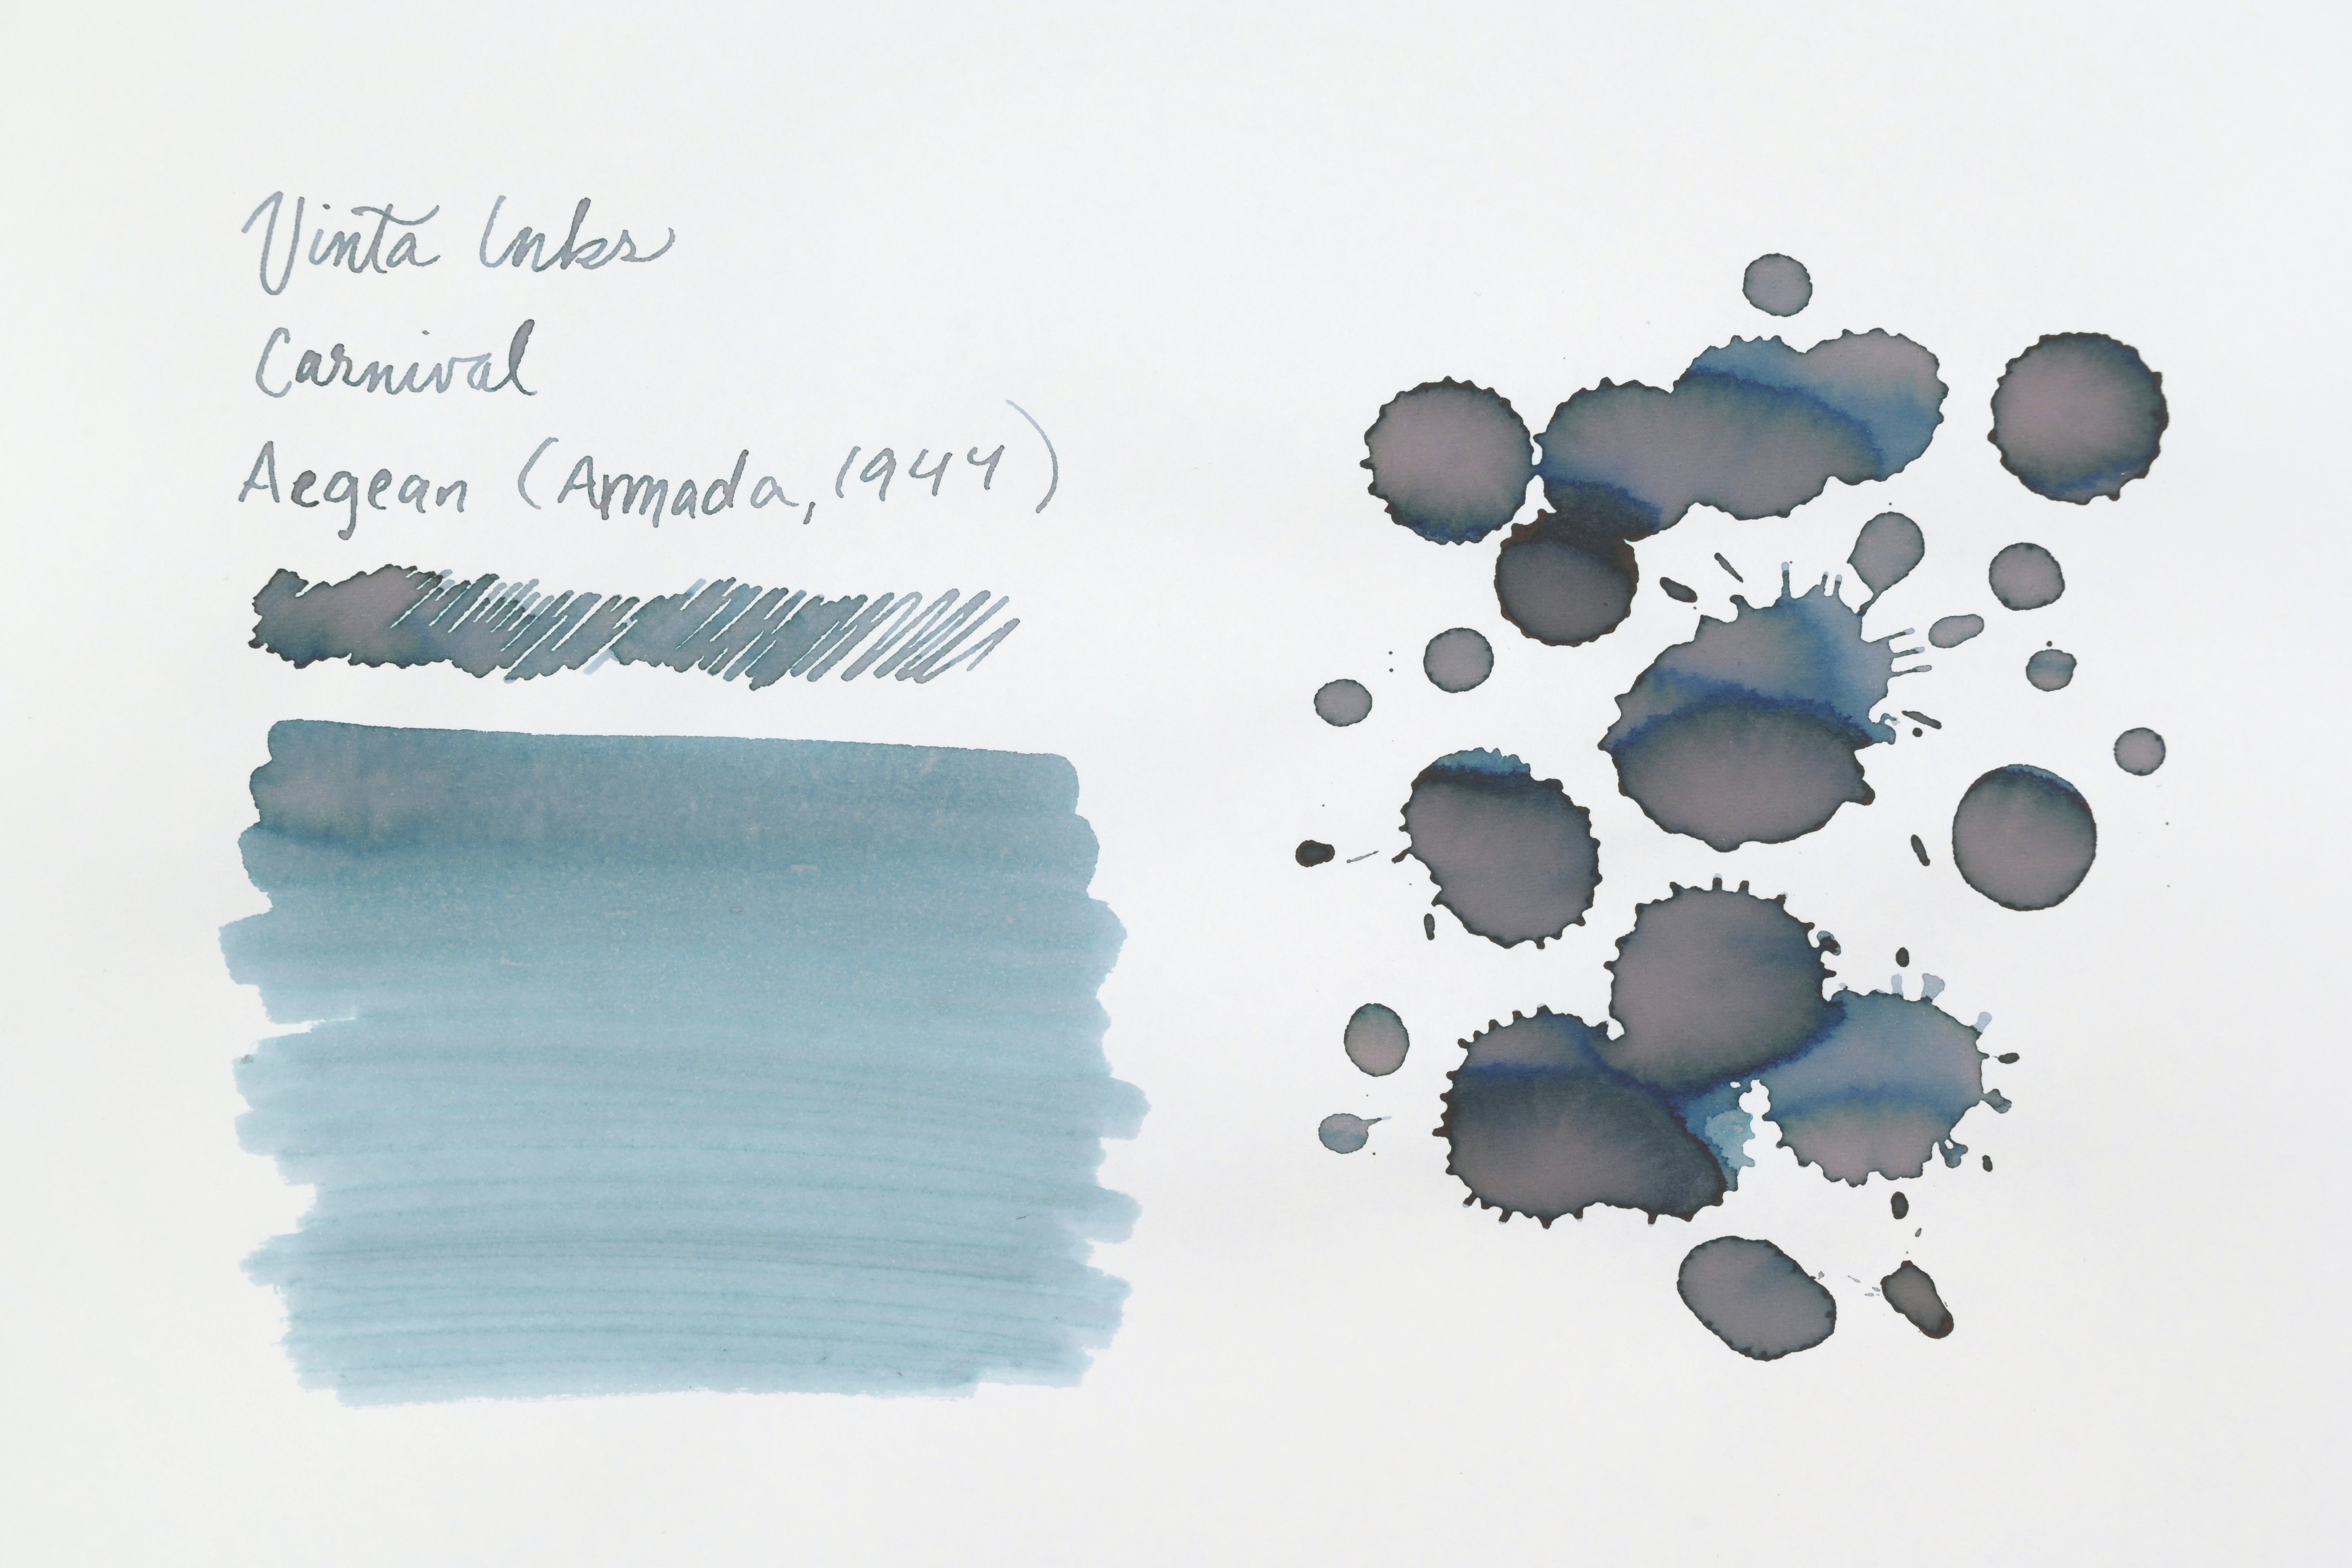 Vinta Inks
Carnival
Aegean (Armada, 1944)